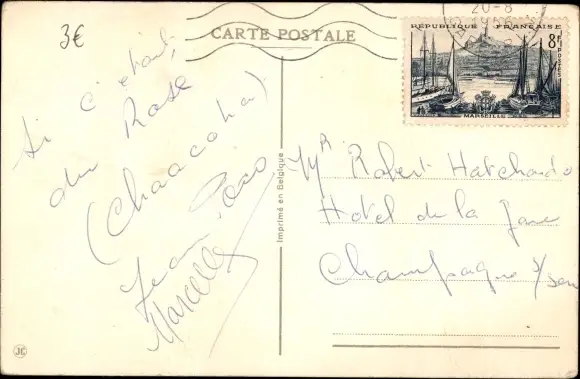 3€
CARTE POSTALE
20-8
RÉPUBLIQUE FRANÇAISE
8f
POSTES
MARSEILLE
Si c'était
du Rose
(Chaacoha)
Jean Poco
Marcelle
Imprimé en Belgique
Mr Robert Hatchando
Hotel de la Gare
Champagne s/Seine
JC